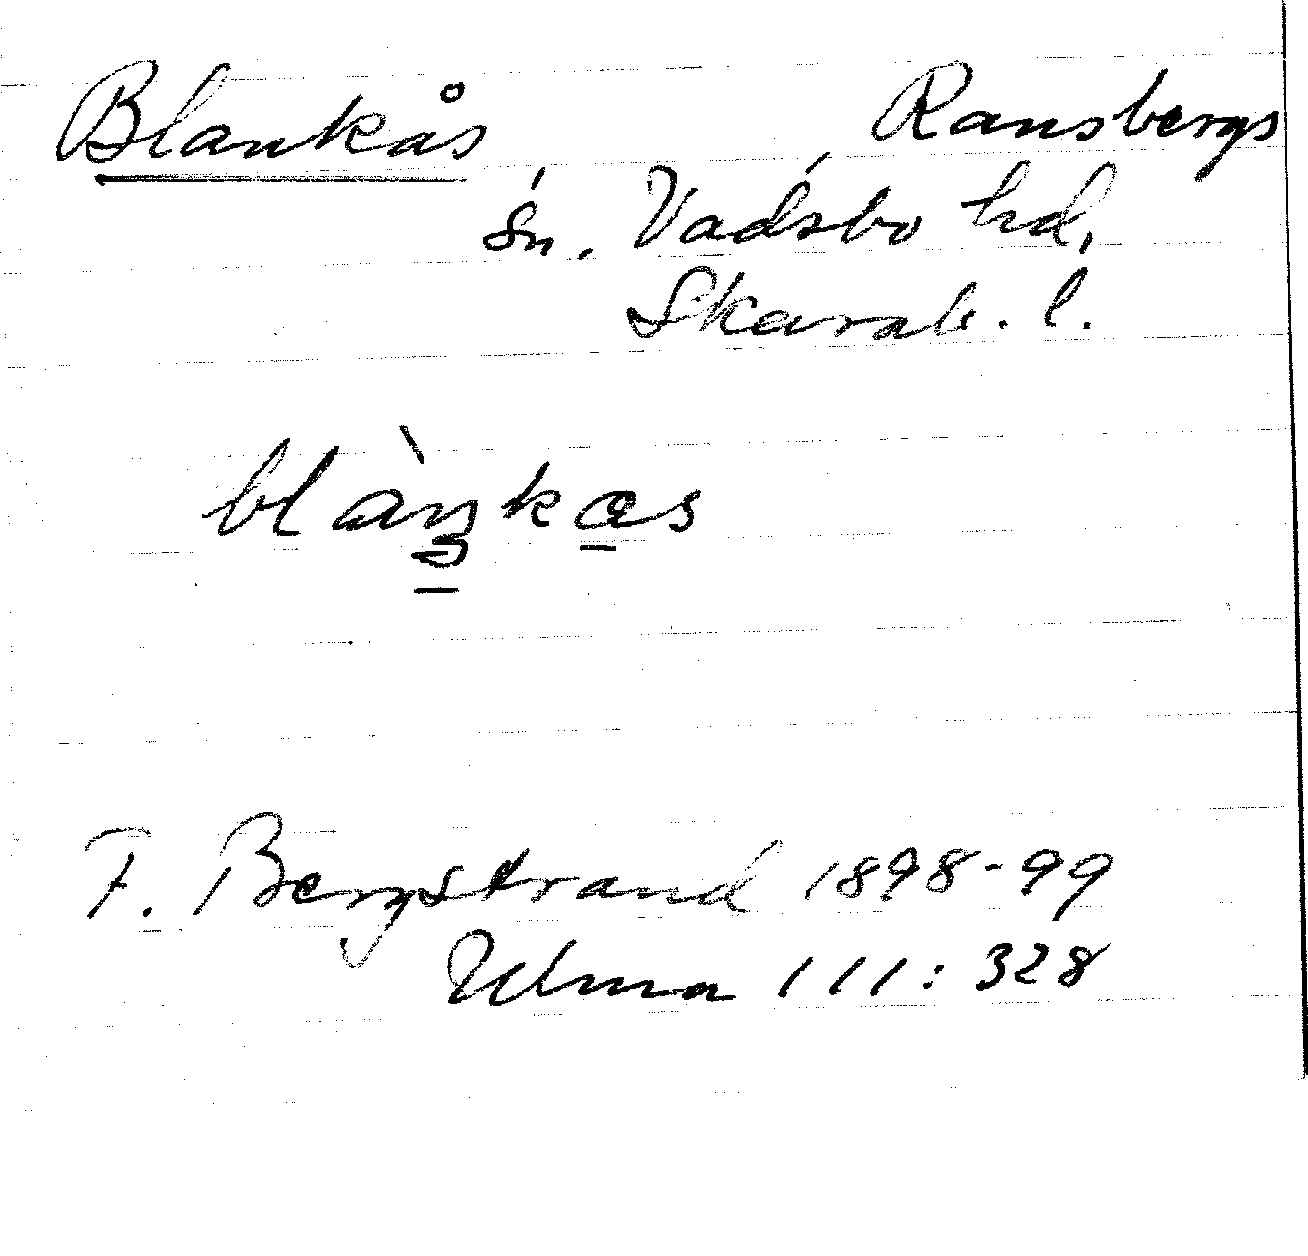 Blankås Ransbergs
sn. Vadsbo hd.
Skarab. l.
blàŋkas
F. Bergstrand 1898-99
Ulma 111:328